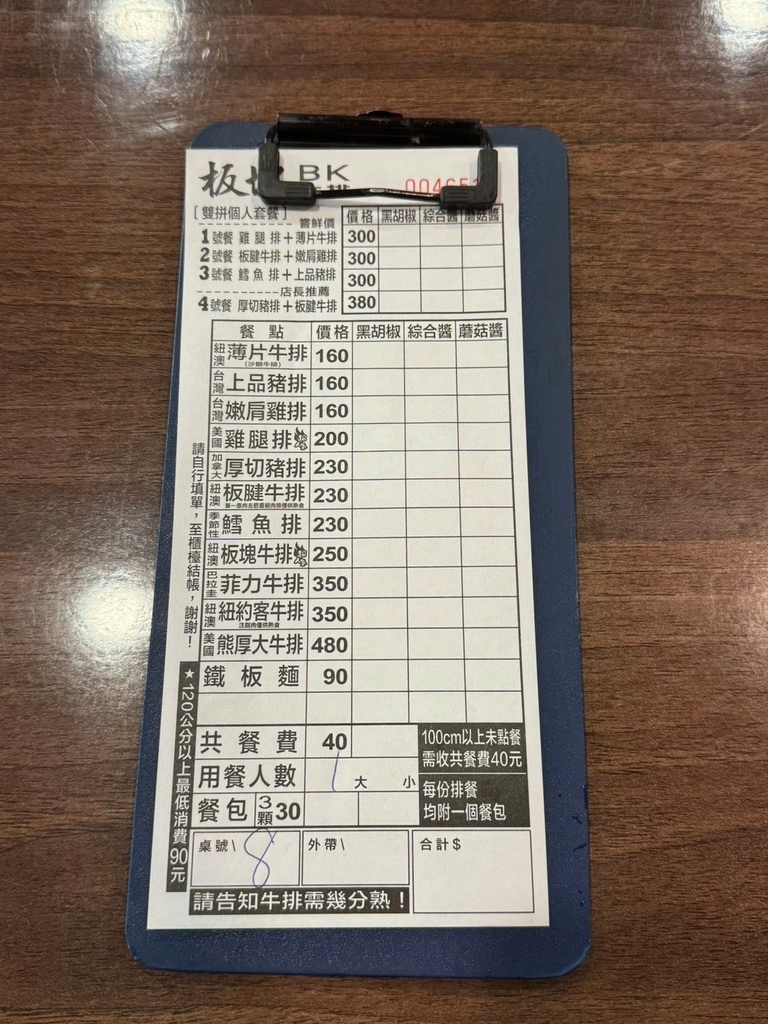 板塊 BK
牛排
[雙拼個人套餐] 嘗鮮價 價格 黑胡椒 綜合醬 蘑菇醬
1號餐 雞腿排+薄片牛排 300
2號餐 板腱牛排+嫩肩雞排 300
3號餐 鱈魚排+上品豬排 300
店長推薦
4號餐 厚切豬排+板腱牛排 380
餐點 價格 黑胡椒 綜合醬 蘑菇醬
紐澳 薄片牛排 160
(沙朗牛排)
台灣 上品豬排 160
台灣 嫩肩雞排 160
美國 雞腿排 200
加拿大 厚切豬排 230
紐澳 板腱牛排 230
季節性 鱈魚排 230
紐澳 板塊牛排 250
巴拉圭 菲力牛排 350
紐澳 紐約客牛排 350
美國 熊厚大牛排 480
鐵板麵 90
共餐費 40
100cm以上未點餐
需收共餐費40元
用餐人數 1 大 小
每份排餐
均附一個餐包
餐包 3顆 30
桌號\ 8 外帶\ 合計$
請告知牛排需幾分熟!
請自行填單,至櫃檯結帳,謝謝!
★120公分以上最低消費90元